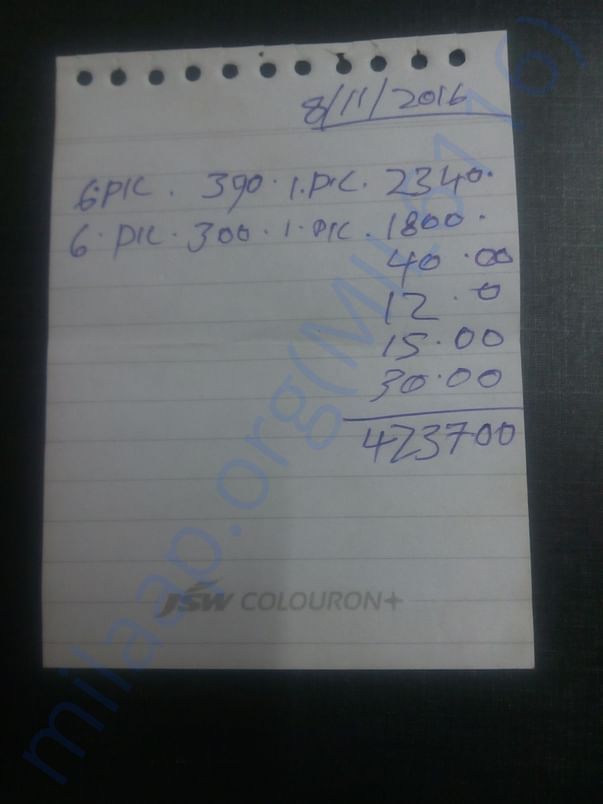 8/11/2016
6.PIC. 390. 1.PIC. 2340.
6. PIC. 300. 1. PIC. 1800.
40.00
12.0
15.00
30.00
423700
JSW COLOURON+
milaap.org(MIL8716)